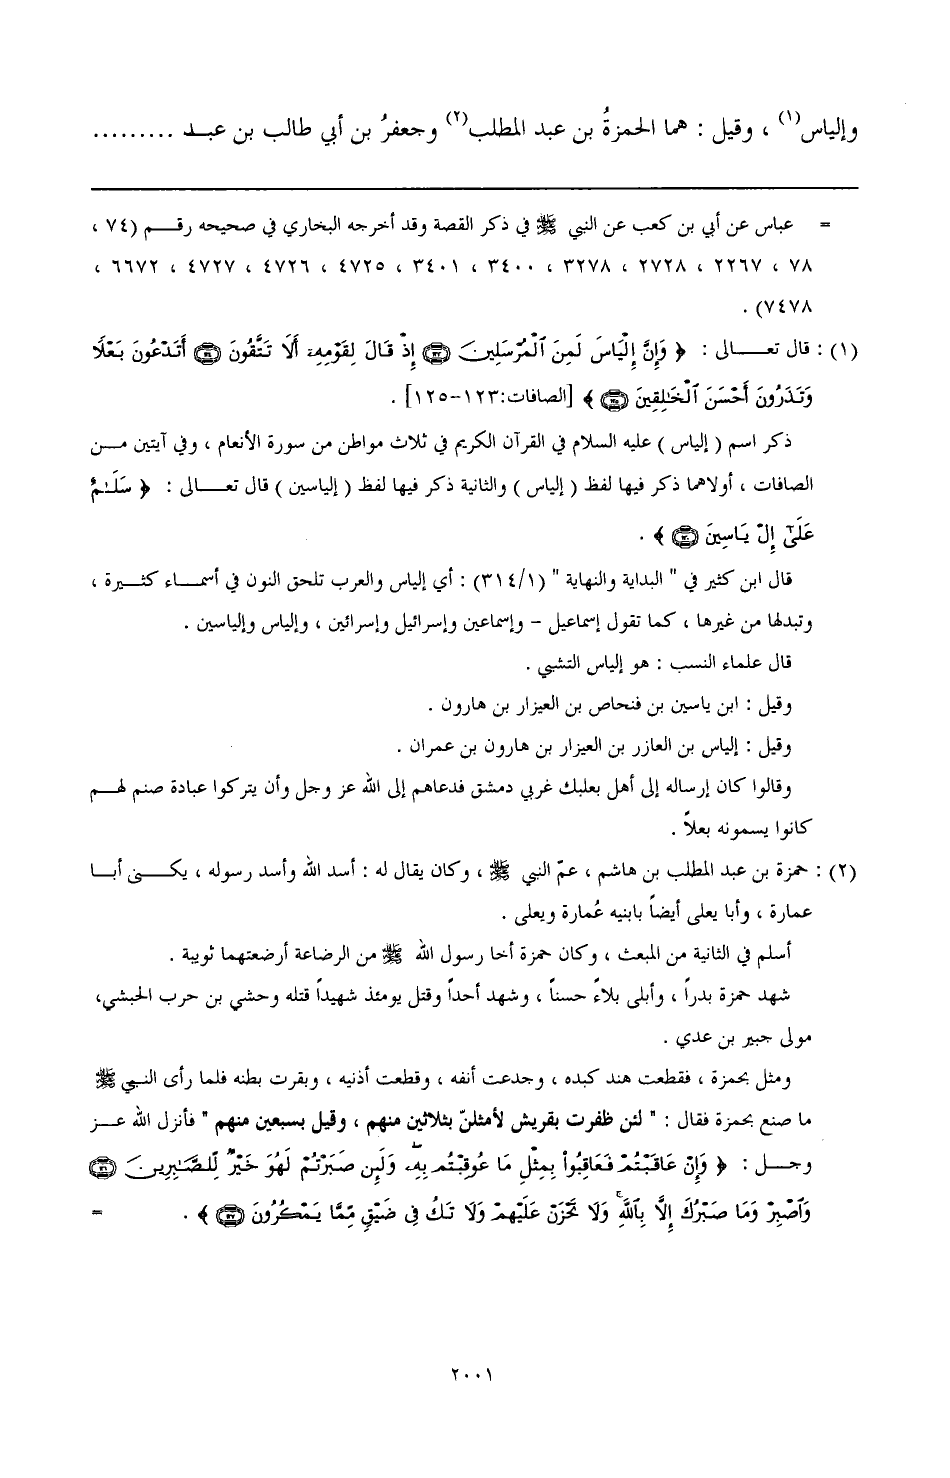 وإلياس(١) ، وقيل : هما الحمزةُ بن عبد المطلب(٢) وجعفرُ بن أبي طالب بن عبـد .........
= عباس عن أبي بن كعب عن النبي ﷺ في ذكر القصة وقد أخرجه البخاري في صحيحه رقـم (٧٤ ،
٧٨ ، ٢٢٦٧ ، ٢٧٢٨ ، ٣٢٧٨ ، ٣٤٠٠ ، ٣٤٠١ ، ٤٧٢٥ ، ٤٧٢٦ ، ٤٧٢٧ ، ٦٦٧٢ ،
٧٤٧٨) .
(١) : قال تعـــالى : ﴿ وَإِنَّ إِلْيَاسَ لَمِنَ ٱلْمُرْسَلِينَ ۝ إِذْ قَالَ لِقَوْمِهِۦٓ أَلَا تَتَّقُونَ ۝ أَتَدْعُونَ بَعْلًا
وَتَذَرُونَ أَحْسَنَ ٱلْخَـٰلِقِينَ ۝ ﴾ [الصافات:١٢٣-١٢٥] .
ذكر اسم ( إلياس ) عليه السلام في القرآن الكريم في ثلاث مواطن من سورة الأنعام ، وفي آيتين مـن
الصافات ، أولاهما ذكر فيها لفظ ( إلياس ) والثانية ذكر فيها لفظ ( إلياسين ) قال تعـــالى : ﴿ سَلَـٰمٌ
عَلَىٰٓ إِلْ يَاسِينَ ۝ ﴾ .
قال ابن كثير في " البداية والنهاية " (٣١٤/١) : أي إلياس والعرب تلحق النون في أسمـاء كثـيرة ،
وتبدلها من غيرها ، كما تقول إسماعيل - وإسماعين وإسرائيل وإسرائين ، وإلياس وإلياسين .
قال علماء النسب : هو إلياس التشبي .
وقيل : ابن ياسين بن فنحاص بن العيزار بن هارون .
وقيل : إلياس بن العازر بن العيزار بن هارون بن عمران .
وقالوا كان إرساله إلى أهل بعلبك غربي دمشق فدعاهم إلى الله عز وجل وأن يتركوا عبادة صنم لهـم
كانوا يسمونه بعلاً .
(٢) : حمزة بن عبد المطلب بن هاشم ، عمّ النبي ﷺ ، وكان يقال له : أسد الله وأسد رسوله ، يكـنى أبـا
عمارة ، وأبا يعلى أيضاً بابنيه عُمارة ويعلى .
أسلم في الثانية من المبعث ، وكان حمزة أخا رسول الله ﷺ من الرضاعة أرضعتهما ثويبة .
شهد حمزة بدراً ، وأبلى بلاءً حسناً ، وشهد أحداً وقتل يومئذ شهيداً قتله وحشي بن حرب الحبشي،
مولى جبير بن عدي .
ومثل بحمزة ، فقطعت هند كبده ، وجدعت أنفه ، وقطعت أذنيه ، وبقرت بطنه فلما رأى النـبي ﷺ
ما صنع بحمزة فقال : " لئن ظفرت بقريش لأمثلنّ بثلاثين منهم ، وقيل بسبعين منهم " فأنزل الله عـز
وجـل : ﴿ وَإِنْ عَاقَبْتُمْ فَعَاقِبُوا۟ بِمِثْلِ مَا عُوقِبْتُم بِهِۦ ۖ وَلَئِن صَبَرْتُمْ لَهُوَ خَيْرٌ لِّلصَّـٰبِرِينَ ۝
وَٱصْبِرْ وَمَا صَبْرُكَ إِلَّا بِٱللَّهِ ۚ وَلَا تَحْزَنْ عَلَيْهِمْ وَلَا تَكُ فِى ضَيْقٍ مِّمَّا يَمْكُرُونَ ۝ ﴾ . =
٢٠٠١